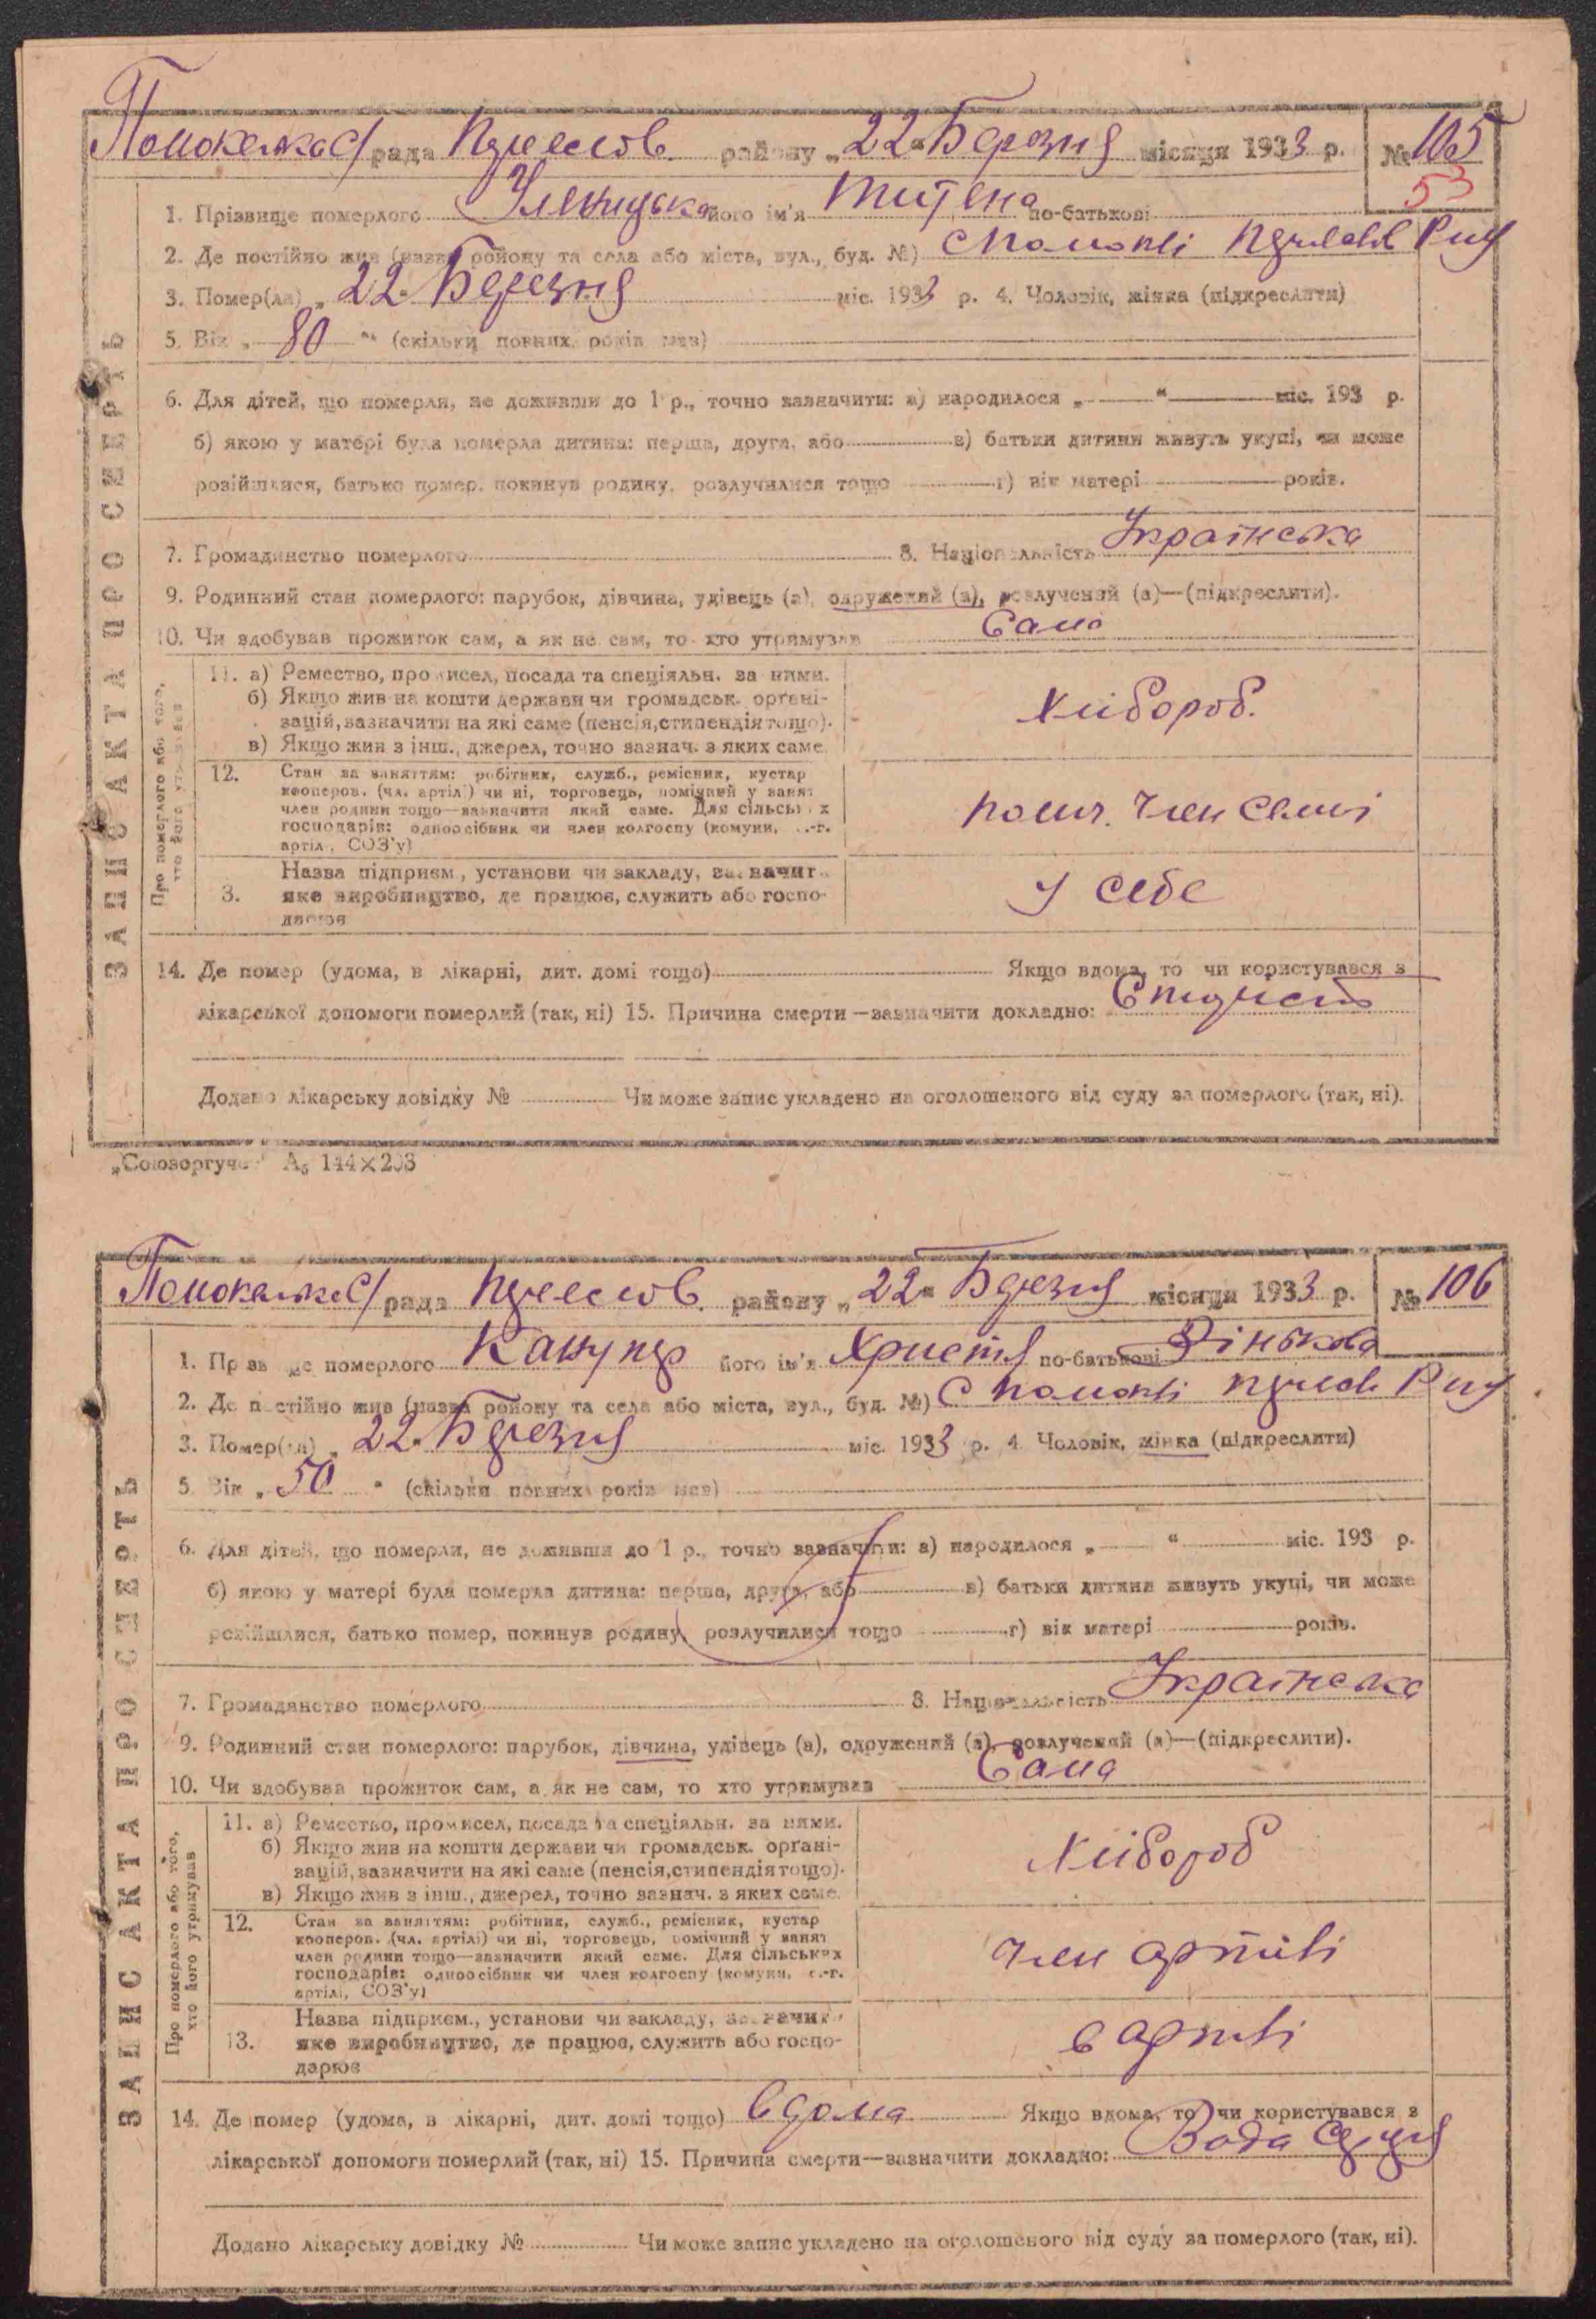 рада району „22“ Березня місяця 1933 р. № 105
53
1. Прізвище померлого його ім'я по-батькові
2. Де постійно жив (назва району та села або міста, вул., буд. №)
3. Помер(ла) „22“ Березня міс. 1933 р. 4. Чоловік, жінка (підкреслити)
5. Вік „80“ (скільки повних років мав)
6. Для дітей, що померли, не доживши до 1 р., точно зазначити: а) народилося „ “ міс. 193 р.
б) якою у матері була померла дитина: перша, друга, або в) батьки дитини живуть укупі, чи може
розійшлися, батько помер, покинув родину, розлучилися тощо г) вік матері років.
7. Громадянство померлого 8. Національність Українська
9. Родинний стан померлого: парубок, дівчина, удівець (а), одружений (а), розлучений (а)—(підкреслити).
10. Чи здобував прожиток сам, а як не сам, то хто утримував Сама
ЗАПИС АКТА ПРО СМЕРТЬ
Про померлого або того, хто його утримував
11. а) Ремество, промисел, посада та спеціяльн. за ними.
б) Якщо жив на кошти держави чи громадськ. орґані-
зацій, зазначити на які саме (пенсія, стипендія тощо).
в) Якщо жив з інш., джерел, точно зазнач. з яких саме.
Хлібороб.
12. Стан за заняттям: робітник, служб., ремісник, кустар
кооперов. (чл. артілі) чи ні, торговець, помічний у занят
член родини тощо—зазначити який саме. Для сільських
господарів: одноосібник чи член колгоспу (комуни, с.-г.
артілі, СОЗ'у)
член семї
3. Назва підприєм., установи чи закладу, зазначити
яке виробництво, де працює, служить або госпо-
дарює
У себе
14. Де помер (удома, в лікарні, дит. домі тощо) Якщо вдома, то чи користувався з
лікарської допомоги померлий (так, ні) 15. Причина смерти—зазначити докладно:
Додано лікарську довідку № Чи може запис укладено на оголошеного від суду за померлого (так, ні).
„Союзоргуч А₅ 144×203
рада району „22“ Березня місяця 1933 р. № 106
1. Прізвище померлого його ім'я Христя по-батькові Зінькова
2. Де постійно жив (назва району та села або міста, вул., буд. №)
3. Помер(ла) „22“ Березня міс. 1933 р. 4. Чоловік, жінка (підкреслити)
5. Вік „50“ (скільки повних років мав)
6. Для дітей, що померли, не доживши до 1 р., точно зазначити: а) народилося „ “ міс. 193 р.
б) якою у матері була померла дитина: перша, друга, або в) батьки дитини живуть укупі, чи може
розійшлися, батько помер, покинув родину, розлучилися тощо г) вік матері років.
7. Громадянство померлого 8. Національність Українська
9. Родинний стан померлого: парубок, дівчина, удівець (а), одружений (а), розлучений (а)—(підкреслити).
10. Чи здобував прожиток сам, а як не сам, то хто утримував Сама
ЗАПИС АКТА ПРО СМЕРТЬ
Про померлого або того, хто його утримував
11. а) Ремество, промисел, посада та спеціяльн. за ними.
б) Якщо жив на кошти держави чи громадськ. орґані-
зацій, зазначити на які саме (пенсія, стипендія тощо).
в) Якщо жив з інш., джерел, точно зазнач. з яких саме.
Хлібороб
12. Стан за заняттям: робітник, служб., ремісник, кустар
кооперов. (чл. артілі) чи ні, торговець, помічний у занят
член родини тощо—зазначити який саме. Для сільських
господарів: одноосібник чи член колгоспу (комуни, с.-г.
артілі, СОЗ'у)
член артілі
13. Назва підприєм., установи чи закладу, зазначити
яке виробництво, де працює, служить або госпо-
дарює
в артілі
14. Де помер (удома, в лікарні, дит. домі тощо) вдома Якщо вдома, то чи користувався з
лікарської допомоги померлий (так, ні) 15. Причина смерти—зазначити докладно:
Додано лікарську довідку № Чи може запис укладено на оголошеного від суду за померлого (так, ні).